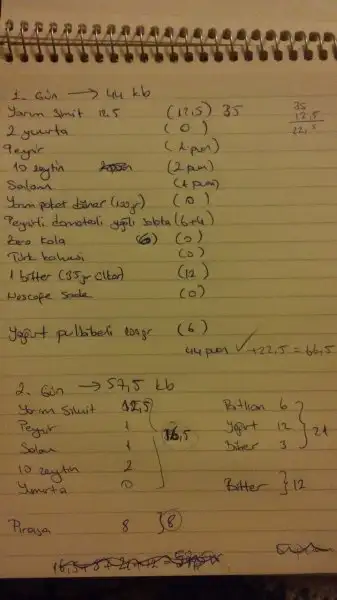 1. Gün → 44 kb
Yarım Simit 12,5 (12,5) 35
35
12,5
22,5
2 yumurta (0)
Peynir (1 puan)
10 zeytin (2 puan)
Salam (1 puan)
Yarım paket döner (100gr) (0)
Peynirli domatesli yağlı salata (6+4)
Zero kola (0)
Türk kahvesi (0)
1 bitter (35gr (12)
Nescafe Sade (0)
Yoğurt pulbiberli 100gr (6)
44 puan ✓ +22,5 = 66,5
2. Gün → 57,5 kb
Yarım Simit 12,5
Peynir 1
Salam 1
10 zeytin 2
Yumurta 0
16,5
6
Yoğurt 12
Biber 3
21
Bitter } 12
Pırasa 8 } 8